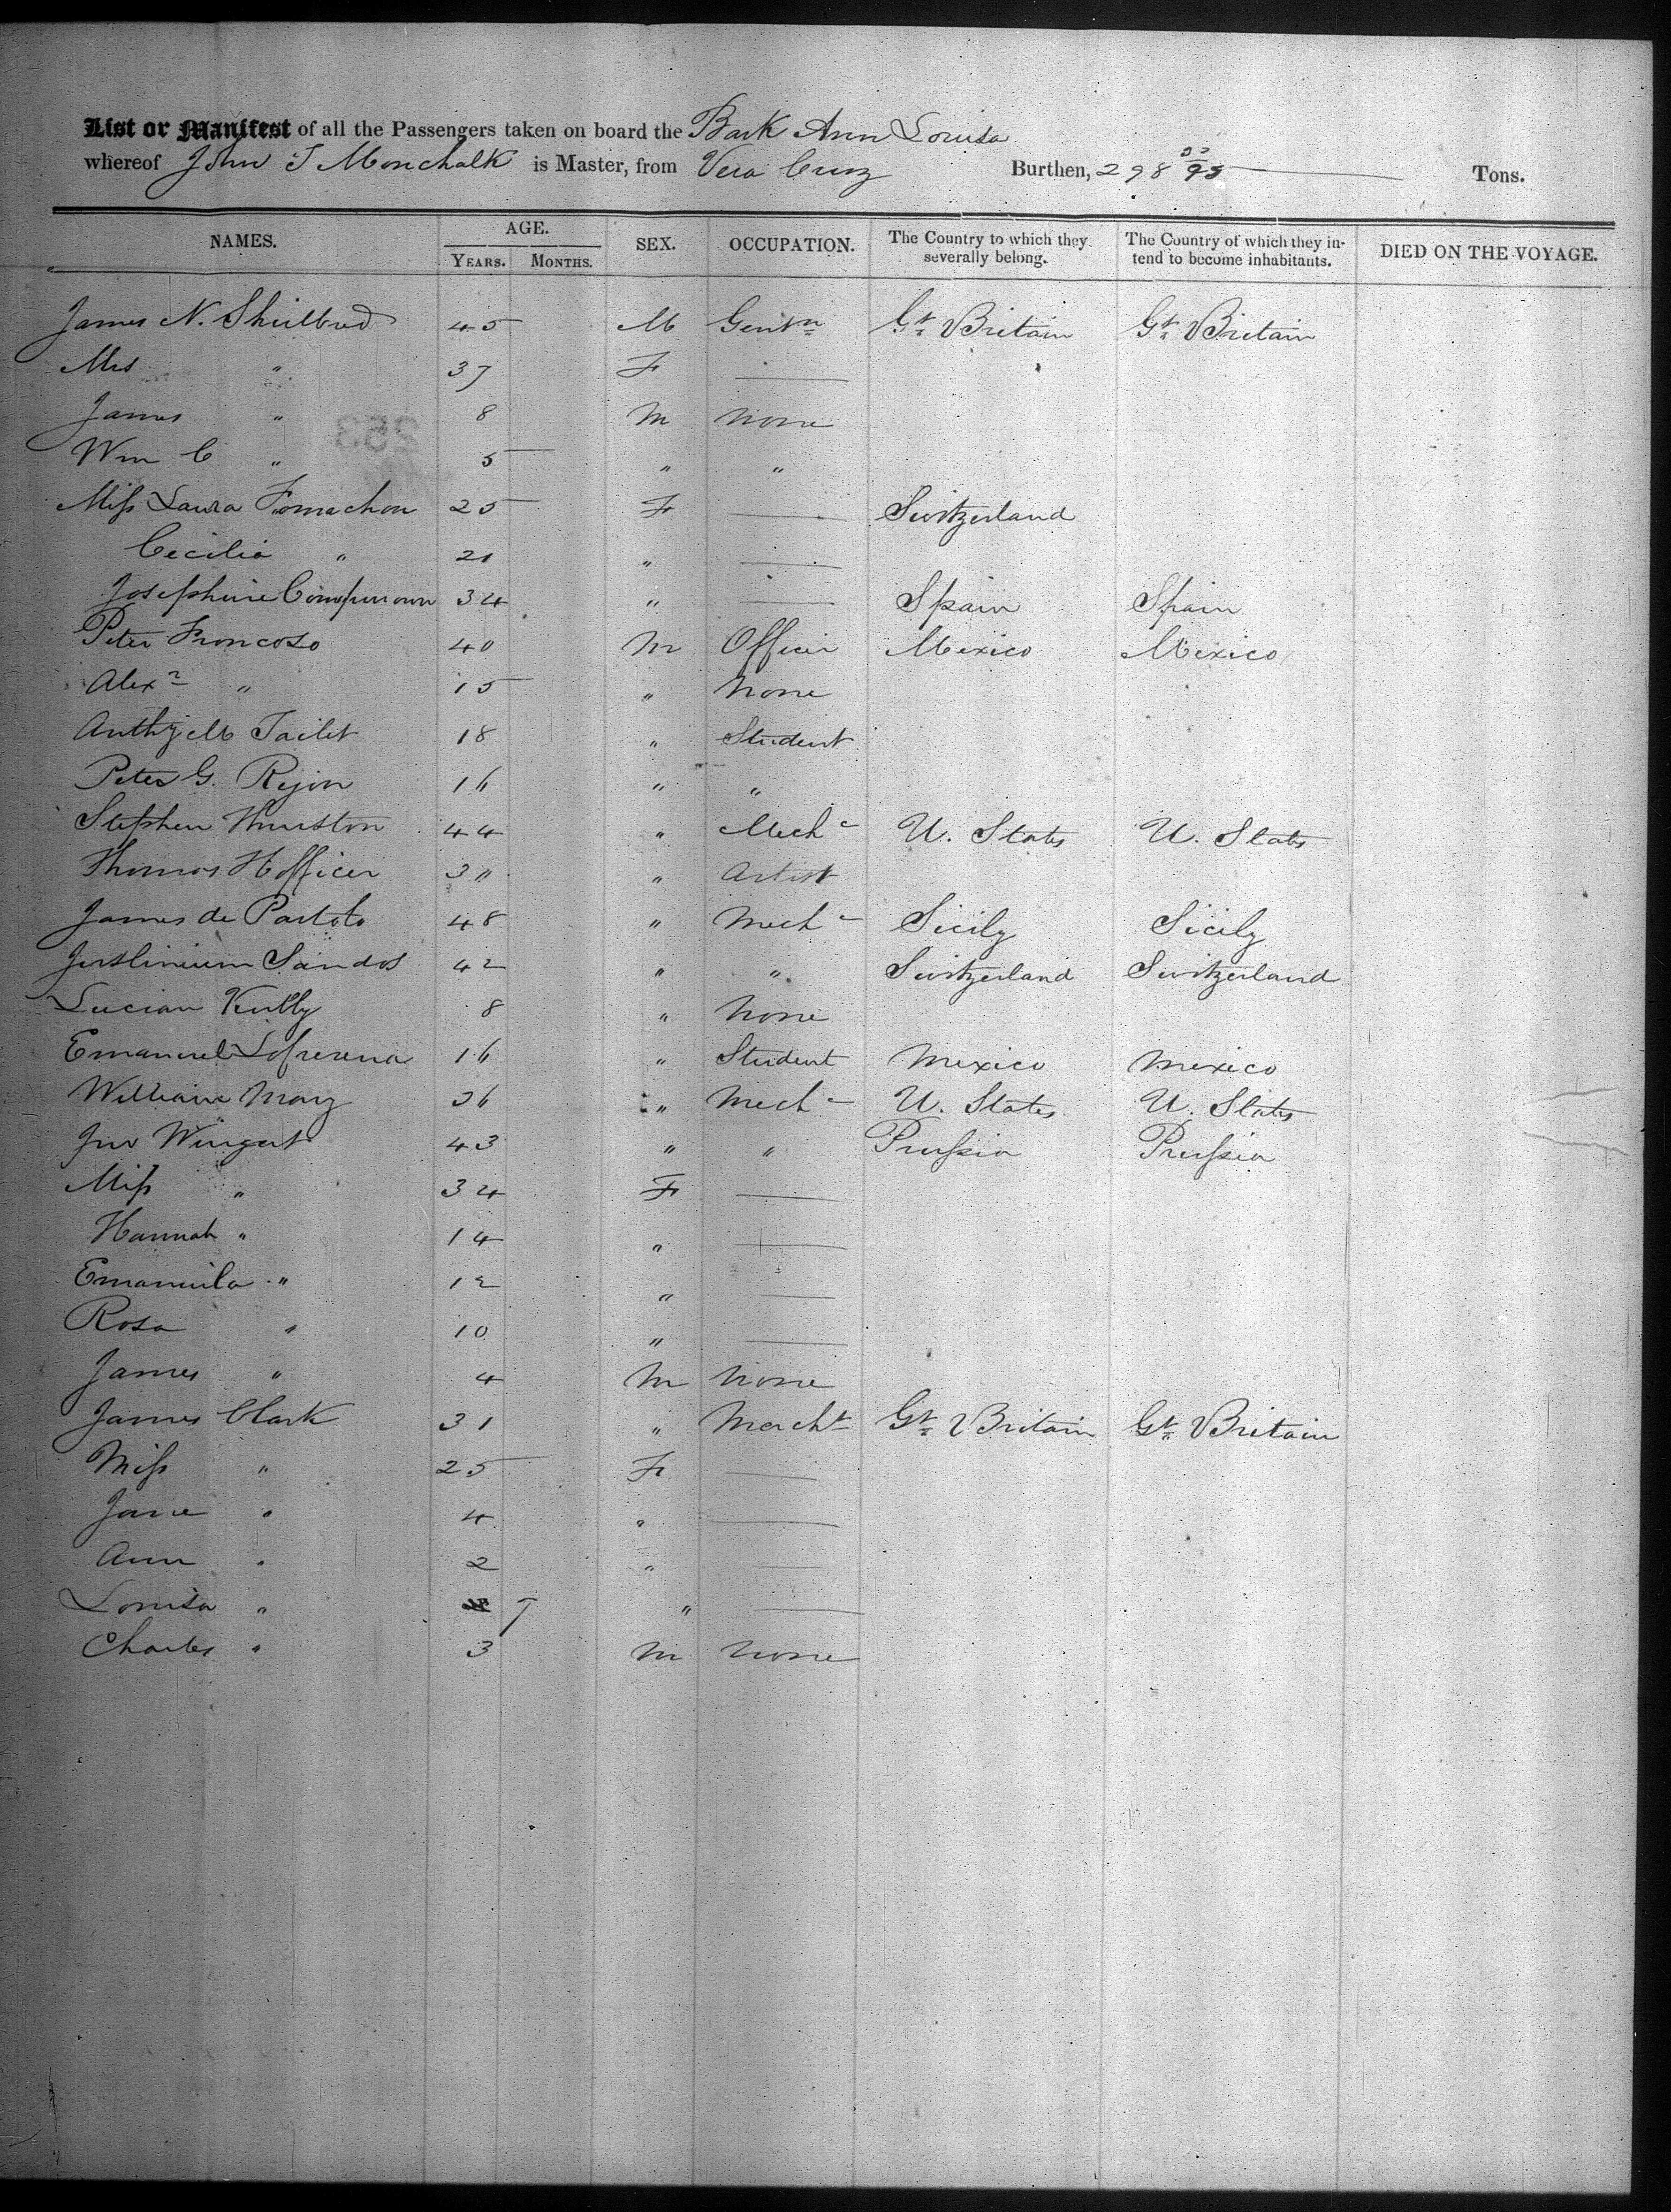 List or Manifest of all the Passengers taken on board the Bark Ann Louisa
whereof John T Monchalk is Master, from Vera Cruz Burthen, 298 95 Tons.
NAMES. AGE. SEX. OCCUPATION. The Country to which they severally belong. The Country of which they intend to become inhabitants. DIED ON THE VOYAGE.
YEARS. MONTHS.
James N. Shulbred 45 M Gentn Gt Britain Gt Britain
Mrs " 37 F —
James " 8 M None
Wm C " 5 " "
Miss Laura 25 F — Switzerland
Cecilia " 21 " —
Josephine 34 " — Spain Spain
Peter Froncoso 40 M Officer Mexico Mexico
Alexr " 15 " None
Anthy M Tailet 18 " Student
Peter G. Rejon 16 " "
Stephen Thurston 44 " Mechc U. States U. States
Thomas H Officer 3 " Artist
James de Partolo 48 " Mechc Sicily Sicily
Sandos 42 " " Switzerland Switzerland
Lucian 8 " None
Emanuel 16 " Student Mexico Mexico
William May 36 " Mechc U. States U. States
Jno Wingert 43 " " Prussia Prussia
Miss " 34 F —
Hannah " 14 " —
Emanuila " 12 " —
Rosa " 10 " —
James " 4 M None
James Clark 31 " Mercht Gt Britain Gt Britain
Miss " 25 F —
Jane " 4 " —
Ann " 2 " —
Louisa " " —
Charles " 3 M None
253